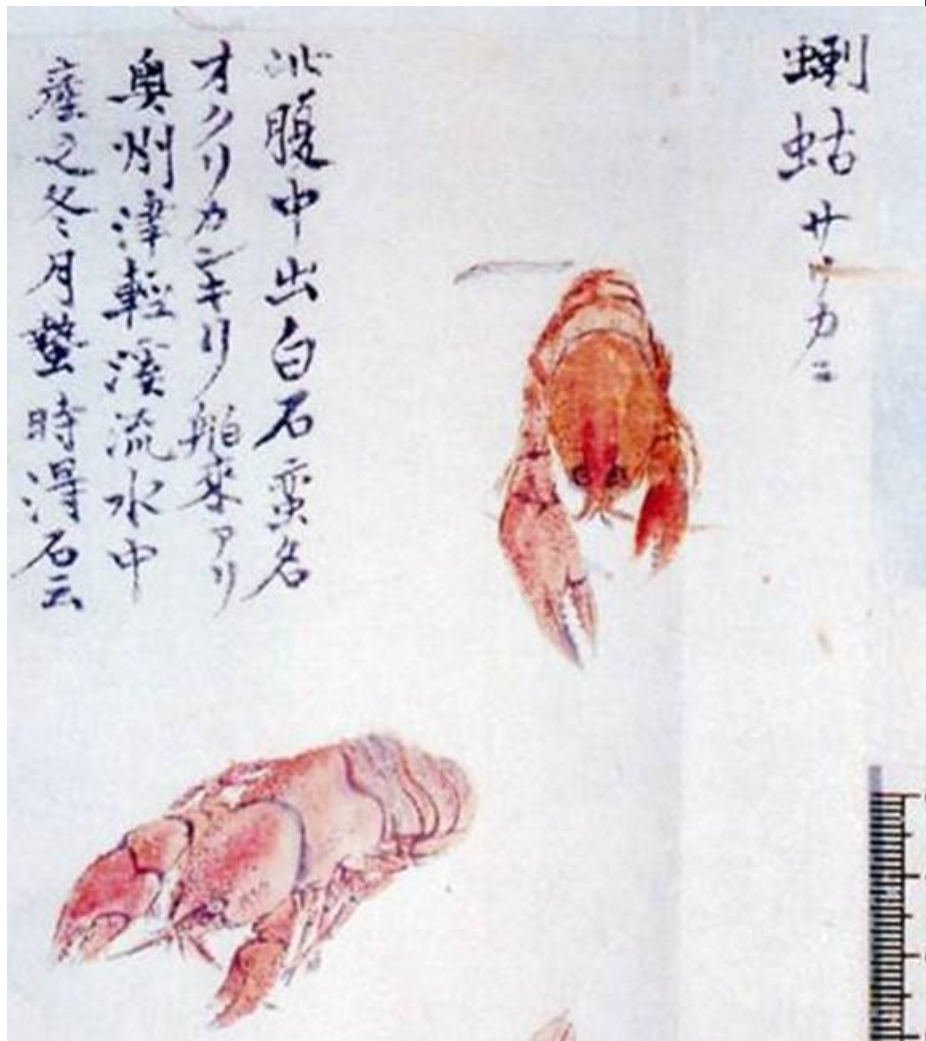 蝲蛄 サリカニ
此腹中出白石蛮名
オクリカンキリ舶来アリ
奥州津輕溪流水中
產之冬月蟄時得石云